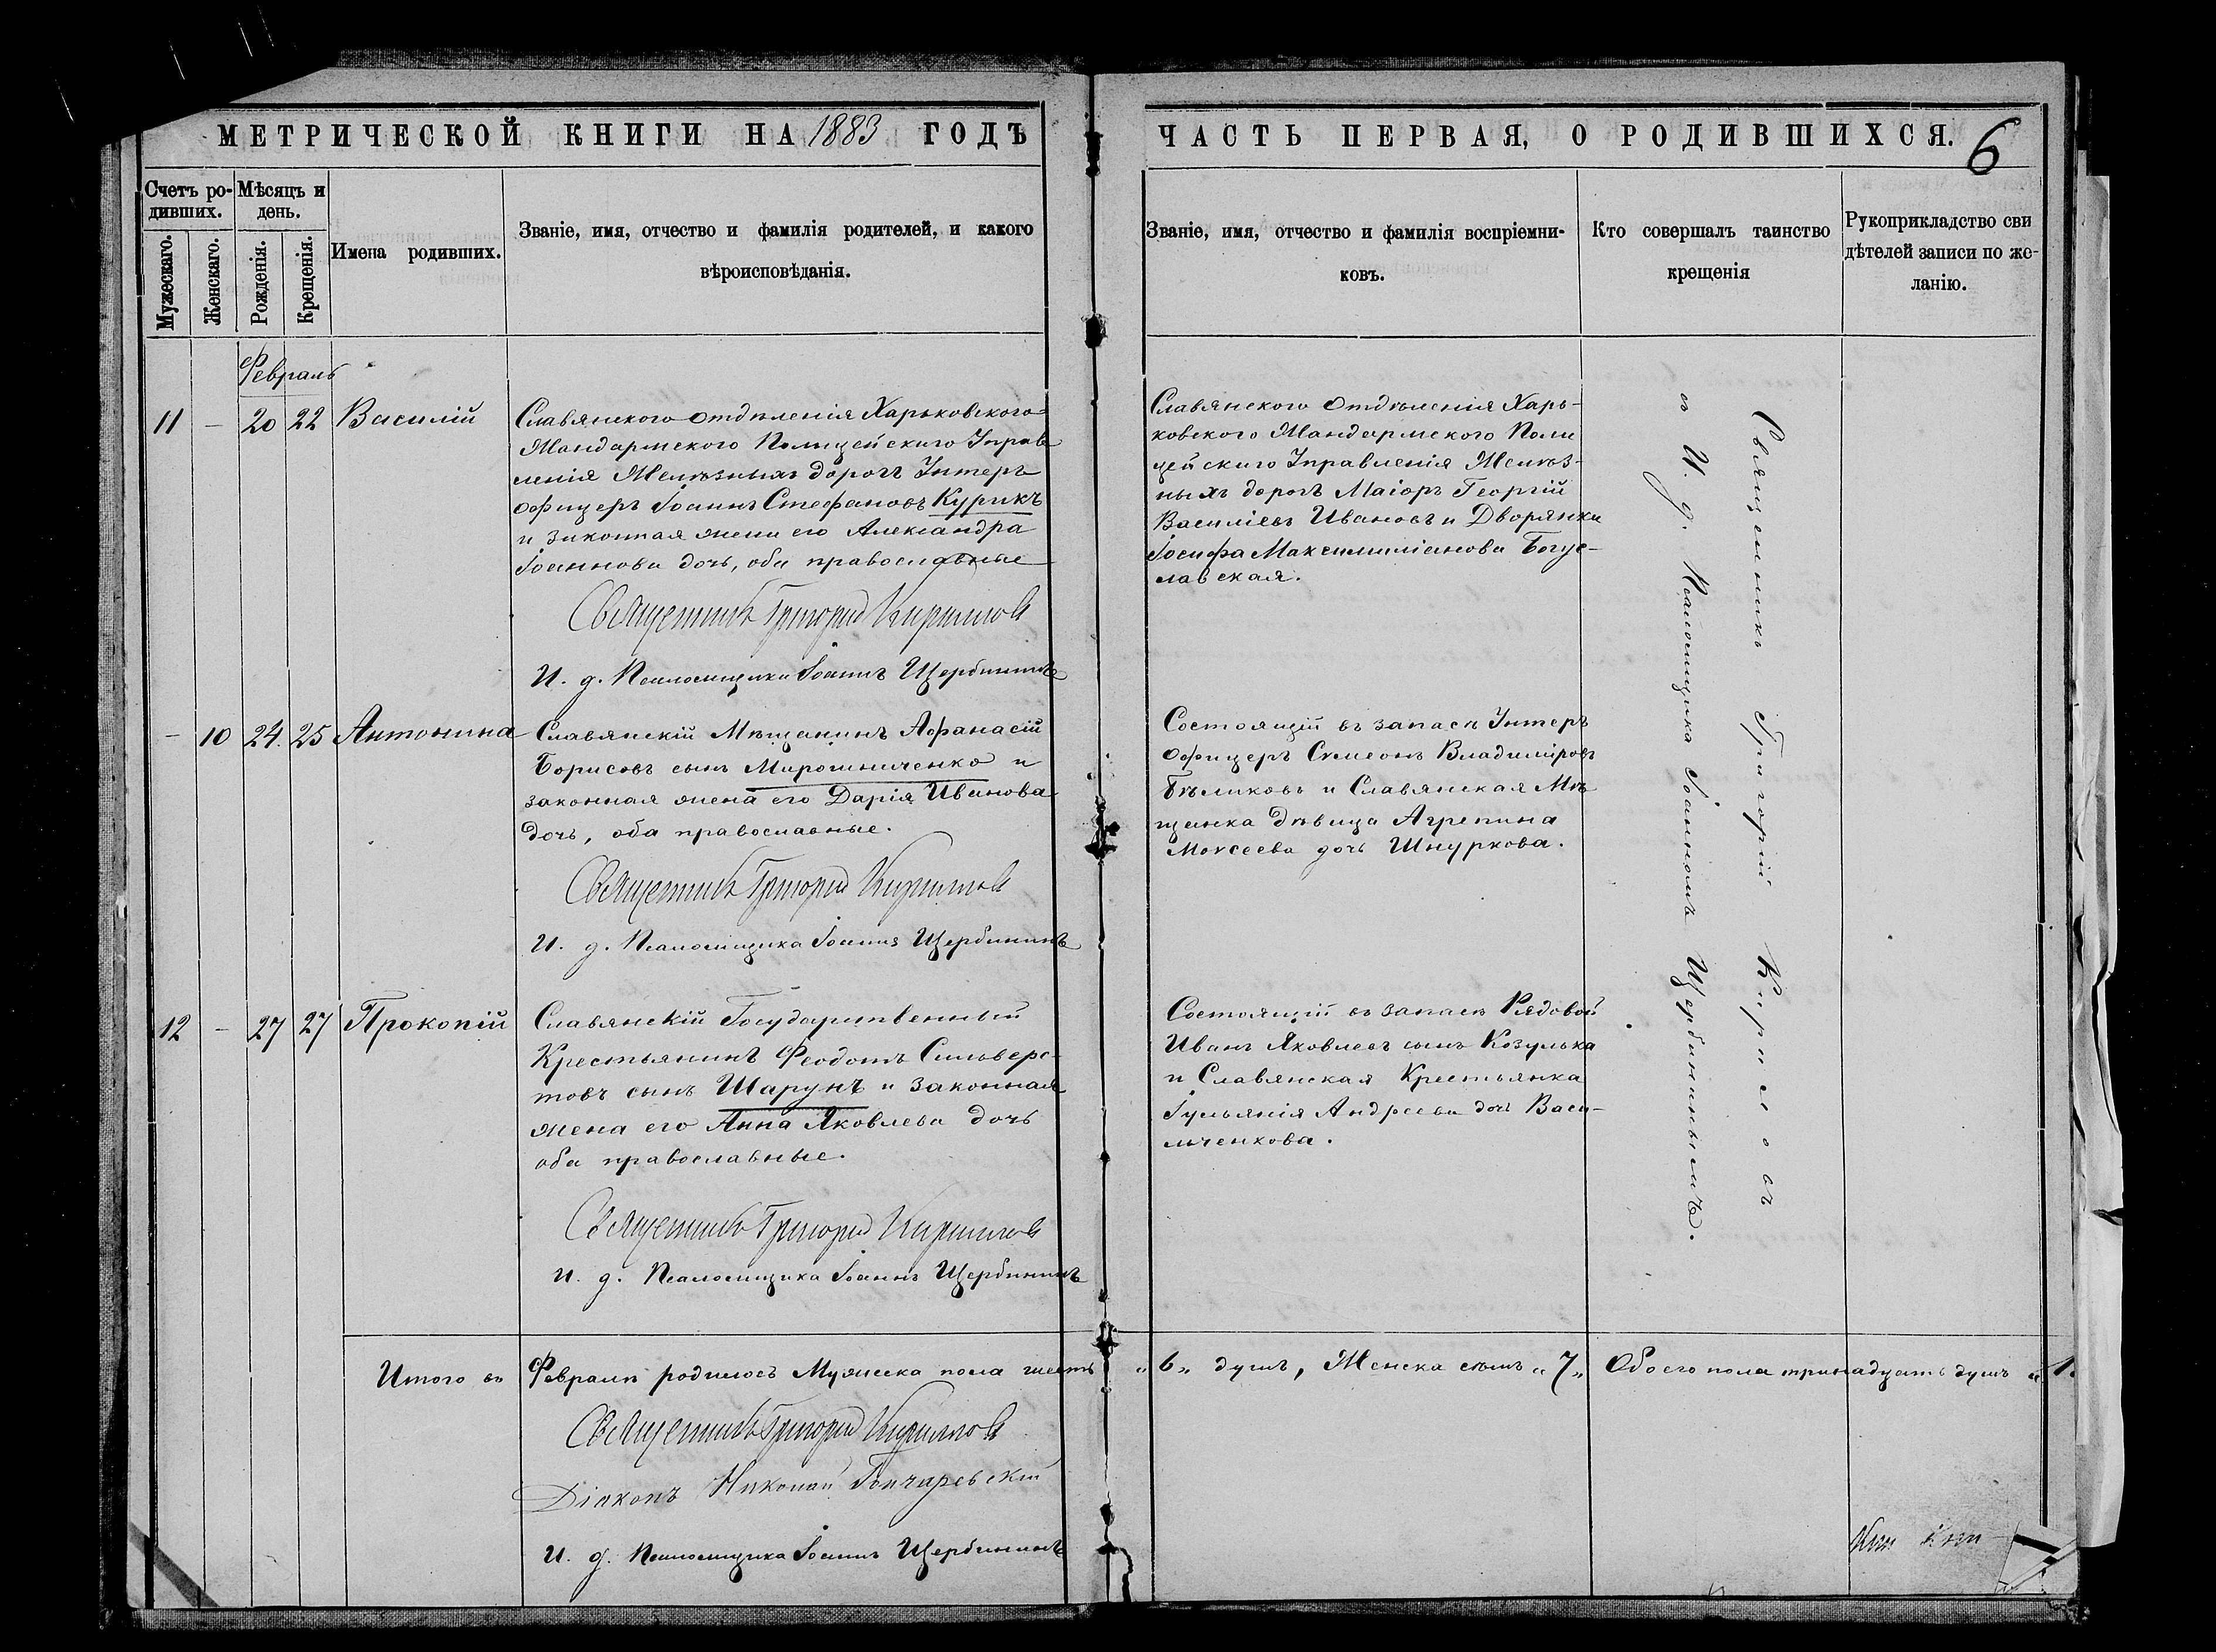 МЕТРИЧЕСКОЙ КНИГИ НА 1883 ГОДЪ
Счетъ ро-
дивших.
Мѣсяцъ и
день.
Мужескаго.
Женскаго.
Рожденія.
Крещенія.
Имена родивших.
Званіе, имя, отчество и фамилія родителей, и какого
вѣроисповѣданія.
Февраль
11 — 20 22 Василій
Славянского отдѣленія Харьковского
Жандармского Полицейскиго Управ
ленія Желѣзныхъ дорогъ Унтеръ
офицеръ Іоаннъ Стефановъ Курикъ
и законная жена его Александра
Іоаннова дочь, оба православные
Священникъ Григорій Кириллов
И. д. Псаломщика Іоаннъ Щербининъ
— 10 24. 25 Антонина
Славянскій Мѣщанинъ Афанасій
Борисовъ сынъ Мирошниченко и
законная жена его Дарія Иванова
дочь, оба православные.
Священникъ Григорій Кириллов
И. д. Псаломщика Іоаннъ Щербининъ
12 — 27 27 Прокопій
Славянскій Государственный
Крестьянинъ Феодотъ Сильверс-
товъ сынъ Шарунъ и законная
жена его Анна Яковлева дочь
оба православные.
Священникъ Григорій Кириллов
И. д. Псаломщика Іоаннъ Щербининъ
Итого въ Февралѣ родилось Мужеска пола шесть
Священникъ Григорій Кириллов
Діаконъ Николай Гончаревскій
И. д. Псаломщика Іоаннъ Щербининъ
ЧАСТЬ ПЕРВАЯ, О РОДИВШИХСЯ.
6
Званіе, имя, отчество и фамилія воспріемни-
ковъ.
Кто совершалъ таинство
крещенія
Рукоприкладство сви
дѣтелей записи по же-
ланію.
Славянского Отдѣленія Харь-
ковского Жандармского Поли
цейскиго Управленія Желѣз-
ныхъ дорогъ Маіоръ Георгій
Василіевъ Ивановъ и Дворянка
Іосифа Максимиліанова Богус-
лавская.
Состоящій въ запасѣ Унтеръ
Офицеръ Сѵмеонъ Владиміровъ
Бѣликовъ и Славянская Мѣ
щанка дѣвица Агрепина
Моѵсеева дочь Шнуркова.
Состоящій въ запасѣ Рядовой
Иванъ Яковлевъ сынъ Козулька
и Славянская Крестьянка
Іульянія Андреева дочь Васи-
льченкова.
Священникъ Григорій Кириловъ
съ И. д. Псаломщика Іоанномъ Щербининымъ.
„6„ душъ, Женска семь „7„ Обоего пола тринадцать душъ